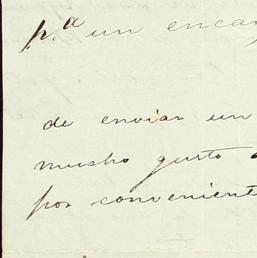 p.ª un encar
de enviar un
mucho gusto
por conveniente